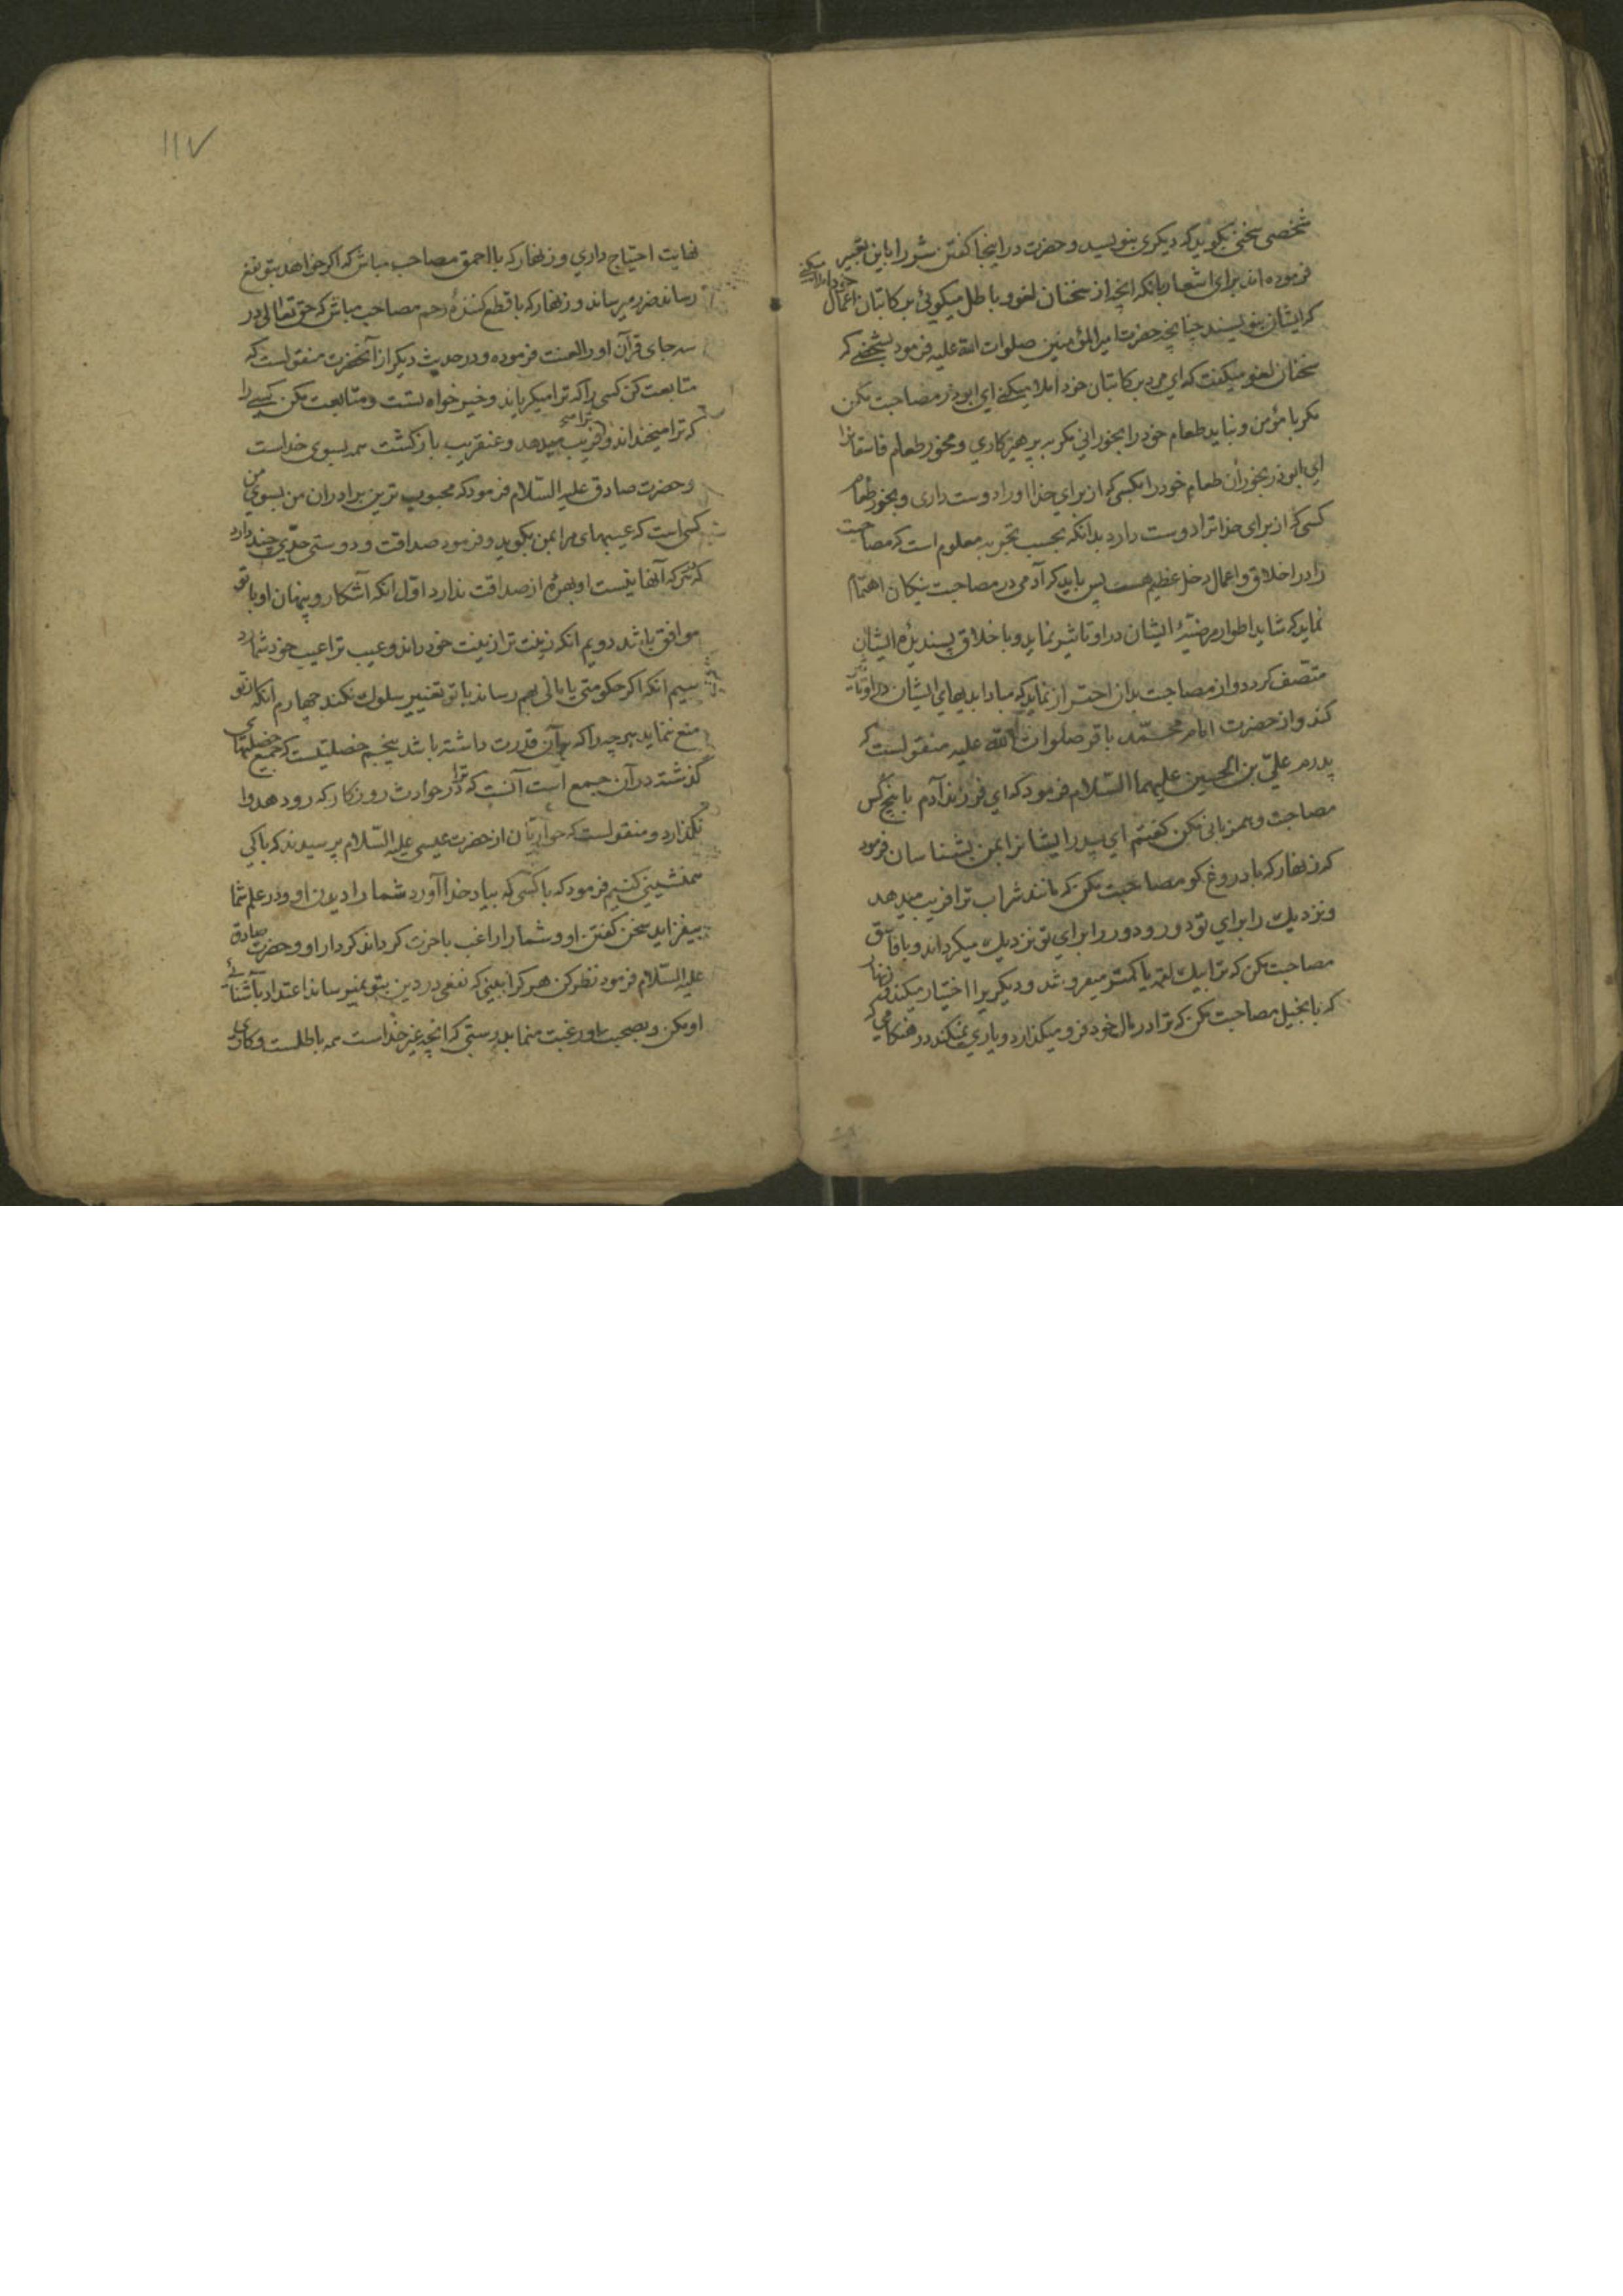 شخصی سخنی بگوید که دیگری بنویسد و حضرت در اینجا گفتن بشر را باین تعبیر
فرموده اند برای اشعار بانکه انچه از سخنان لغو و باطل میگوئی بر کاتبان اعمال خود املا میکنی
که ایشان بنویسند چنانچه حضرت امیر المؤمنین صلوات الله علیه فرمود بشخصی که
سخنان لغو میگفت که ای مرد بر کاتبان خود املا میکنی ای ابوذر مصاحبت مکن
مگر با مؤمن و نباید طعام خود را بخورانی مگر به پرهیزکاری و مخور طعام فاسقانرا
ای ابوذر بخوران طعام خود را بکسی که از برای خدا او را دوست داری و بخور طعام
کسی که از برای خدا ترا دوست دارد بدانکه بحسب تجربه معلوم است که مصاحبت
را در اخلاق و اعمال دخل عظیم هست پس باید که آدمی در مصاحبت نیکان اهتمام
نماید که شاید اطوار مرضیّهٔ ایشان در او تاثیر نماید و باخلاق پسندیدهٔ ایشان
متصف گردد و از مصاحبت بدان احتراز نماید که مبادا بدیهای ایشان در او تاثیر
کند و از حضرت امام محمّد باقر صلوات الله علیه منقولست که
پدرم علیّ بن الحسین علیهما السّلام فرمود که ای فرزند آدم با پنج کس
مصاحبت و همزبانی مکن گفتم ای پدر ایشانرا بمن بشناسان فرمود
که زنهار که با دروغ گو مصاحبت مکن که مانند شراب ترا فریب میدهد
و نزدیك را برای تو دور و دور را برای تو نزدیك میگرداند و با فاسق
مصاحبت مکن که ترا بیك لقمه یا کمتر میفروشد و دیگریرا اختیار میکند و زنهار
که با بخیل مصاحبت مکن که ترا در مال خود فرو میگذارد و یاری نمیکند در هنگامی که
۱۱۷
نهایت احتیاج داری و زنهار که با احمق مصاحب مباش که اگر خواهد بتو نفع
رساند ضرر میرساند و زنهار که با قطع کنندهٔ رحم مصاحب مباش که حق تعالی در
سه جای قرآن او را لعنت فرموده و در حدیث دیگر از آنحضرت منقولست که
متابعت کن کسی را که ترا میگریاند و خیر خواه تست و متابعت مکن کسی را
که ترا میخنداند و ترا فریب میدهد و عنقریب بازگشت همه بسوی خداست
و حضرت صادق علیه السّلام فرمود که محبوب ترین برادران من بسوی من
کسی است که عیبهای مرا بمن بگوید و فرمود صداقت و دوستی حدّی چند دارد
که هر که آنها نیست او بهرهٔ از صداقت ندارد اوّل انکه آشکار و پنهان او با تو
موافق باشد دویم انکه زینت ترا زینت خود داند و عیب ترا عیب خود شمارد
سیم انکه اگر حکومتی یا مالی بهم رساند با تو تغییر سلوك نکند چهارم انکه از تو
منع ننماید هر چه را که بآن قدرت داشته باشد پنجم خصلتیست که جمیع خصلتهای
گذشته در آن جمع است آنست که ترا در حوادث روزگار که رو دهد وا
نگذارد و منقولست که حواریّان از حضرت عیسی علیه السّلام پرسیدند که با کی
همنشینی کنیم فرمود که با کسی که بیاد خدا آورد شما را دیدن او و در علم شما
بیفزاید سخن گفتن او و شما را راغب باخرت گرداند کردار او و حضرت صادق
علیه السّلام فرمود نظر کن هر کرا ببینی که نفعی در دین بتو نمیرساند اعتداد بآشنائی
او مکن و بصحبت او رغبت منما بدرستی که انچه غیر خداست همه باطلست